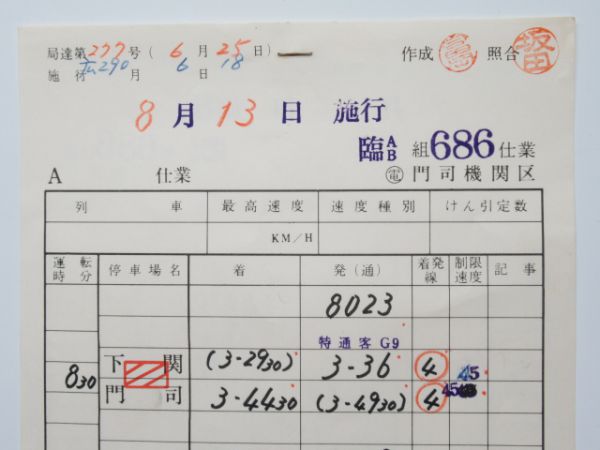 局達第277号(6月25日)
施行 広290 月 6 日 18
作成 照合 坂田
8月13日 施行
臨AB 組686仕業
A 仕業 電 門司機関区
列車 最高速度 速度種別 けん引定数
KM/H
運転時分 停車場名 着 発(通) 着発線 制限速度 記事
8023
特通客G9
830 下関 (3-2930) 3-36 4 45
門司 3-4430 (3-4930) 4 45